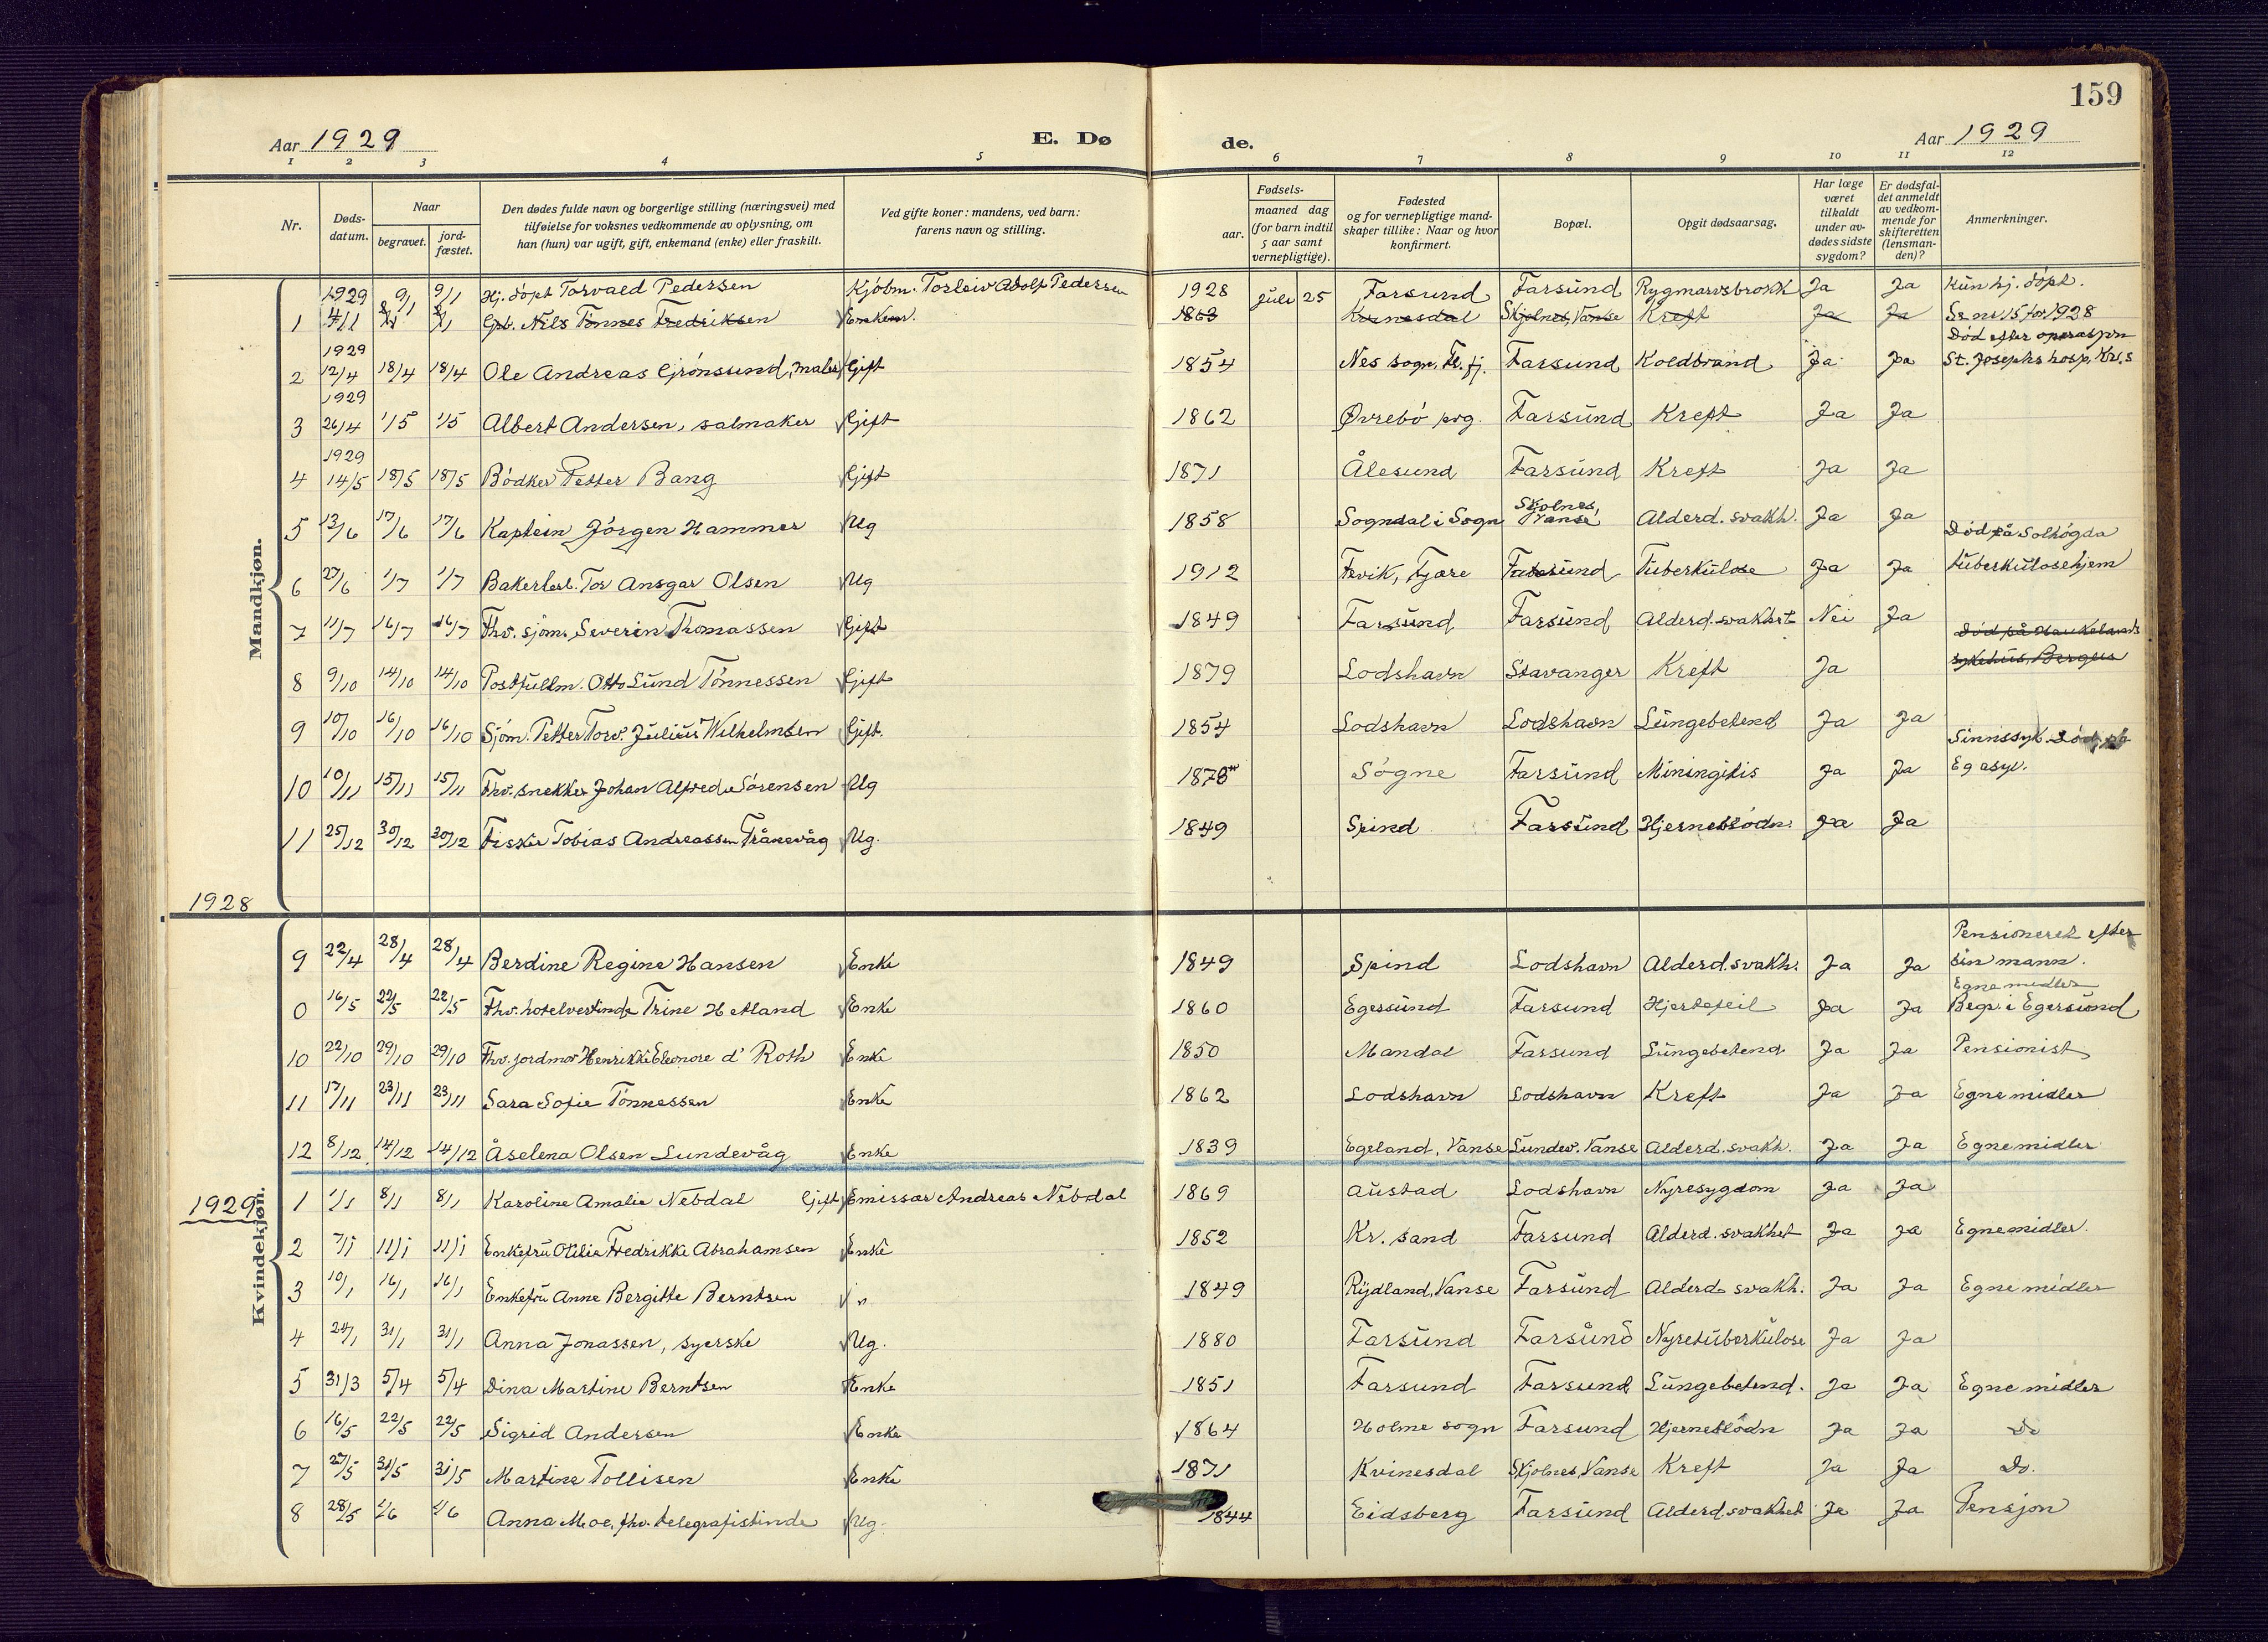 159
Aar 1929 E. Dø de. Aar 1929
1 2 3 4 5 6 7 8 9 10 11 12
Nr. Døds-datum. Naar begravet. jord-fæstet. Den dødes fulde navn og borgerlige stilling (næringsvei) med tilføielse for voksnes vedkommende av oplysning, om han (hun) var ugift, gift, enkemand (enke) eller fraskilt. Ved gifte koner: mandens, ved barn: farens navn og stilling. Fødsels- aar. maaned dag (for barn indtil 5 aar samt vernepligtige). Fødested og for vernepligtige mand-skaper tillike: Naar og hvor konfirmert. Bopæl. Opgit dødsaarsag. Har læge været tilkaldt under av-dødes sidste sygdom? Er dødsfal-det anmeldt av vedkom-mende for skifteretten (lensman-den)? Anmerkninger.
Mandkjøn.
1929 9/1 9/1 Hj. døpt Torvald Pedersen Kjøbm. Torleiv Adolf Pedersen 1928 Juli 25 Farsund Farsund Rygmarvsbrokk Ja Ja Kun hj. døpt.
1 4/1 Gbr. Nils Tønnes Fredriksen Enkem. 1863 Kvinesdal Skjolnes, Vanse Kreft Ja Ja Se nr 15 for 1928
2 1929 12/4 18/4 18/4 Ole Andreas Grønsund, maler Gift 1854 Nes sogn, Fl. fj. Farsund Koldbrand Ja Ja Død efter operasjon St. Josephs hosp, Kr.s
3 1929 26/4 1/5 1/5 Albert Andersen, salmaker Gift 1862 Øvrebø prg. Farsund Kreft Ja Ja
4 1929 14/5 18/5 18/5 Bødker Petter Bang Gift 1871 Ålesund Farsund Kreft Ja Ja
5 13/6 17/6 17/6 Kaptein Jørgen Hammer Ug 1858 Sogndal i Sogn Skolnes, Vanse Alderd. svakh. Ja Ja
6 27/6 1/7 1/7 Bakerlærl. Tor Ansgar Olsen Ug 1912 Fevik, Fjære Farsund Tuberkulose Ja Ja Død på Solhøgda tuberkulosehjem
7 11/7 16/7 16/7 Fhv. sjøm. Severin Thomassen Gift 1849 Farsund Farsund Alderd. svakhet Nei Ja
8 9/10 14/10 14/10 Postfullm. Otto Lund Tønnessen Gift 1879 Lodshavn Stavanger Kreft Ja Død på Haukelands sykehus, Bergen
9 10/10 16/10 16/10 Sjøm. Petter Torv. Julius Wilhelmsen Gift. 1854 Lodshavn Lodshavn Lungebetend Ja Ja
10 10/11 15/11 15/11 Fhv. snekker Johan Alfred Sørensen Ug 1878 Søgne Farsund Miningitis Ja Ja Sinnssyk. Død på Eg asyl.
11 25/12 30/12 30/12 Fisker Tobias Andreassen Frånevåg Ug. 1849 Spind Farsund Hjerneblødn. Ja Ja
1928
Kvindekjøn.
9 22/4 28/4 28/4 Berdine Regine Hansen Enke 1849 Spind Lodshavn Alderd. svakh. Ja Ja Pensioneret efter sin mann.
0 16/5 22/5 22/5 Fhv. hotelvertinde Trine Hetland Enke 1860 Egersund Farsund Hjertefeil Ja Ja Egne midler Begr. i Egersund
10 22/10 29/10 29/10 Fhv. jordmor Henrikke Eleonore d' Roth Enke 1850 Mandal Farsund Lungebetend Ja Ja Pensionist
11 17/11 23/11 23/11 Sara Sofie Tønnessen Enke 1862 Lodshavn Lodshavn Kreft Ja Ja Egne midler
12 8/12 14/12 14/12 Åselena Olsen Lundevåg Enke 1839 Egeland, Vanse Lundev. Vanse Alderd. svakh. Ja Ja Egne midler
1929
1 1/1 8/1 8/1 Karoline Amalie Nebdal Gift Emissær Andreas Nebdal 1869 Austad Lodshavn Nyresygdom Ja Ja
2 7/1 11/1 11/1 Enkefru Otilie Fredrikke Abrahamsen Enke 1852 Kr. sand Farsund Alderd. svakhet Ja Ja Egne midler.
3 10/1 16/1 16/1 Enkefru Anne Bergitte Berntsen " 1849 Rydland, Vanse Farsund Alderd. svakh. Ja Ja Egne midler
4 24/1 31/1 31/1 Anna Jonassen, syerske Ug. 1880 Farsund Farsund Nyretuberkulose Ja Ja
5 31/3 5/4 5/4 Dina Martine Berntsen Enke 1851 Farsund Farsund Lungebetend. Ja Ja Egne midler
6 16/5 22/5 22/5 Sigrid Andersen Enke 1864 Holme sogn Farsund Hjerneblødn Ja Ja Do
7 27/5 31/5 31/5 Martine Tollisen Enke 1871 Kvinesdal Skjolnes, Vanse Kreft Ja Ja Do.
8 28/5 1/6 1/6 Anna Moe, fhv. telegrafistinde Ug. 1844 Eidsberg Farsund Alderd. svakhet Ja Ja Pensjon